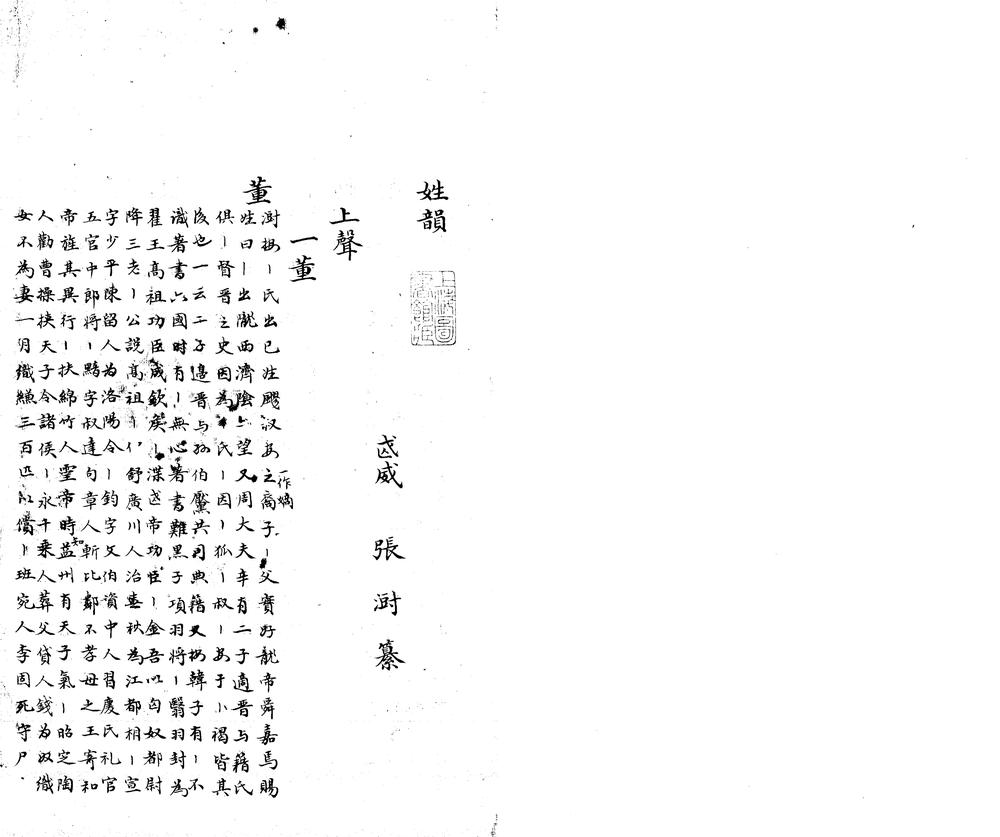 姓韻
武威 張澍 纂
上聲
一董
董
澍按丨氏出己姓飂汊安之裔子丨父實好龍帝舜嘉焉賜
一作熵
姓曰丨丨出隴西濟陰二望又周大夫辛有二子適晋与籍氏
俱丨督晋之史因為氏丨因丨狐丨叔丨安于丨褐皆其
後也一云二子適晋与孙伯黶共司典籍又按韓子有丨不
識著書六國时有丨無心著書難墨子項羽将丨翳羽封為
翟王高祖功臣成敬矦丨渫武帝功臣丨金吾以匈奴都尉
降三老丨公說高祖丨仲舒廣川人治春秋為江都相丨宣
字少平陳留人为洛陽令丨鈞字文伯資中人習慶氏礼官
五官中郎将丨黯字叔達句章人斬比鄰不孝母之王寄和
帝旌其異行丨扶綿竹人靈帝時知益州有天子氣丨昭定陶
人勸曹操挟天子令諸侯丨永千乘人葬父貸人錢为奴織
女不為妻一月織縑三百匹以償丨班宛人李固死守尸